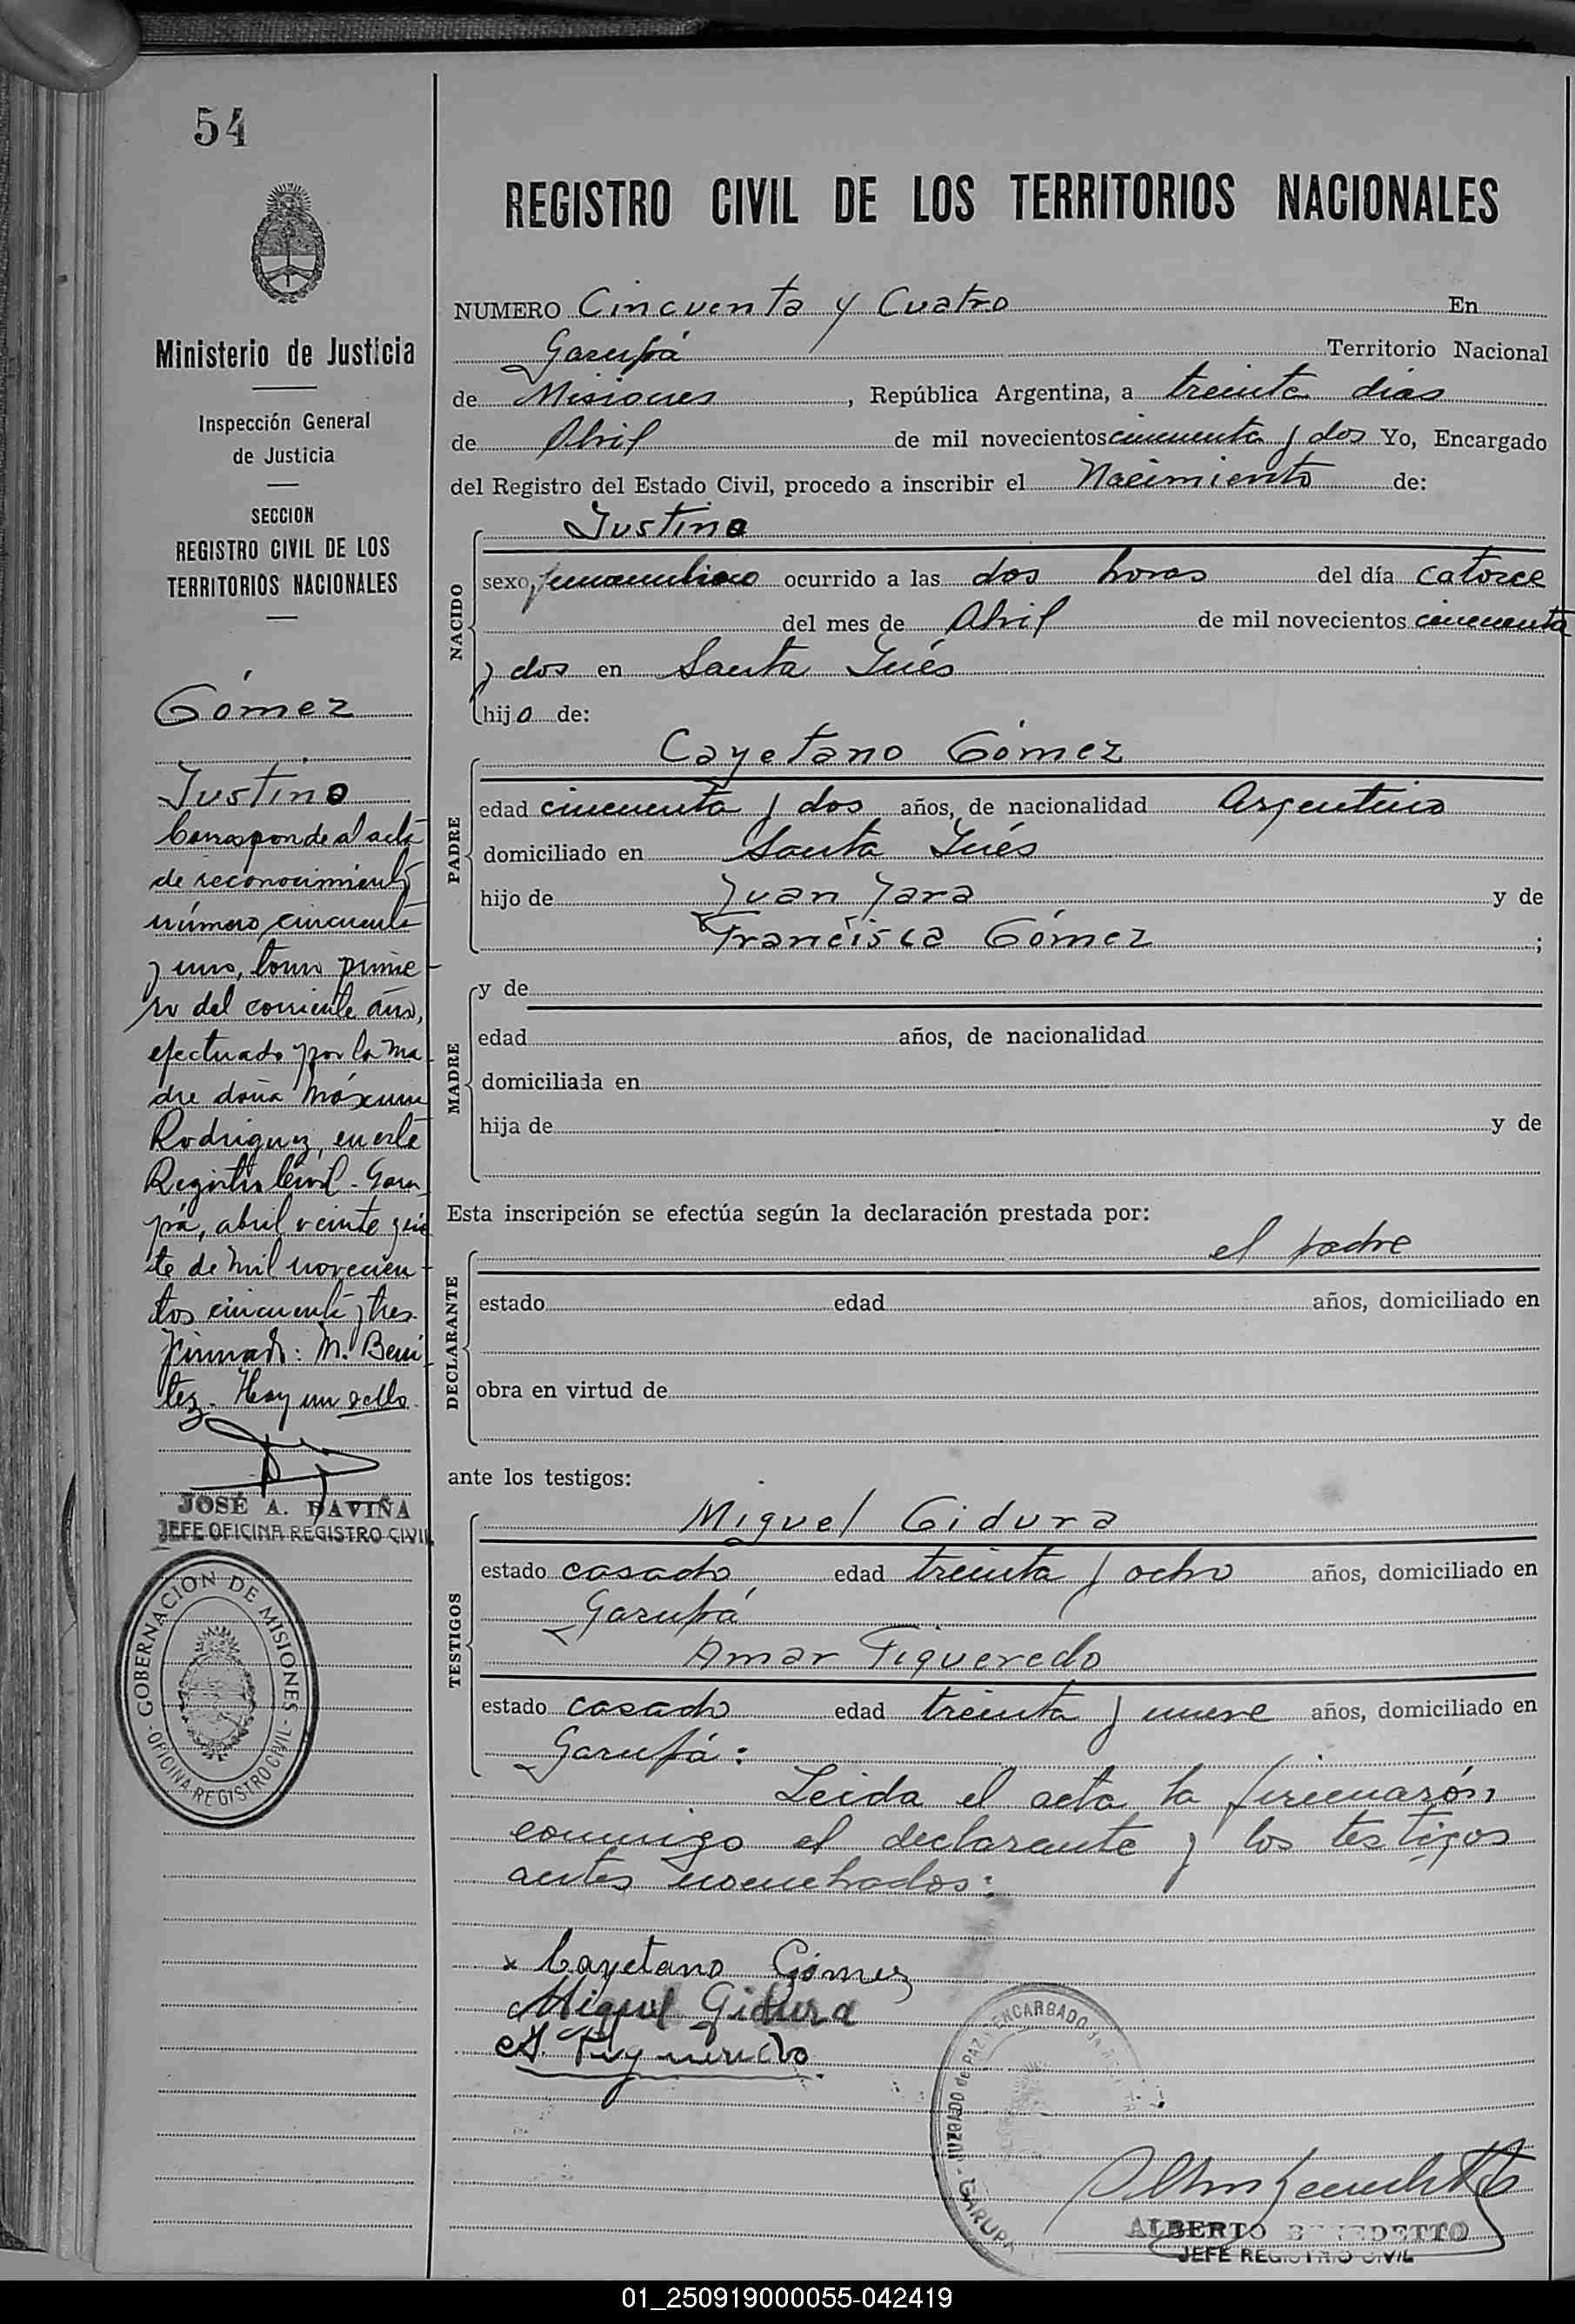 54
Ministerio de Justicia
Inspección General
de Justicia
SECCION
REGISTRO CIVIL DE LOS
TERRITORIOS NACIONALES
Gómez
Justino
Corresponde al acta
de reconocimiento
número cincuenta
y uno, tomo prime-
ro del corriente año,
efectuado por la ma-
dre doña Máxima
Rodriguez, en este
Registro Civil. Garu-
pá, abril veinte y sie
te de mil novecien-
tos cincuenta y tres.
Firmado: M. Bení-
tez. Hay un sello.
JOSÉ A. DAVIÑA
JEFE OFICINA REGISTRO CIVIL
GOBERNACION DE MISIONES
- OFICINA REGISTRO CIVIL -
REGISTRO CIVIL DE LOS TERRITORIOS NACIONALES
NUMERO Cincuenta y Cuatro En
Garupá Territorio Nacional
de Misiones, República Argentina, a treinta días
de Abril de mil novecientos cincuenta y dos Yo, Encargado
del Registro del Estado Civil, procedo a inscribir el Nacimiento de:
NACIDO
Justino
sexo, ocurrido a las dos horas del día catorce
del mes de Abril de mil novecientos cincuenta
y dos en Santa Inés
hijo de:
PADRE
Cayetano Gómez
edad cincuenta y dos años, de nacionalidad Argentino
domiciliado en Santa Inés
hijo de Juan Jara y de
Francisca Gómez ;
MADRE
y de
edad años, de nacionalidad
domiciliada en
hija de y de
Esta inscripción se efectúa según la declaración prestada por:
DECLARANTE
el padre
estado edad años, domiciliado en
obra en virtud de
ante los testigos:
TESTIGOS
Miguel Gidura
estado casado edad treinta y ocho años, domiciliado en
Garupá
Amar Figueredo
estado casado edad treinta y nueve años, domiciliado en
Garupá:
Leida el acta la firmarón
conmigo el declarante y los testigos
antes nombrados:
x Cayetano Gómez
Miguel Gidura
A. Figueredo
JUZGADO de PAZ ENCARGADO
GARUPA
ALBERTO BENEDETTO
JEFE REGISTRO CIVIL
01_250919000055-042419